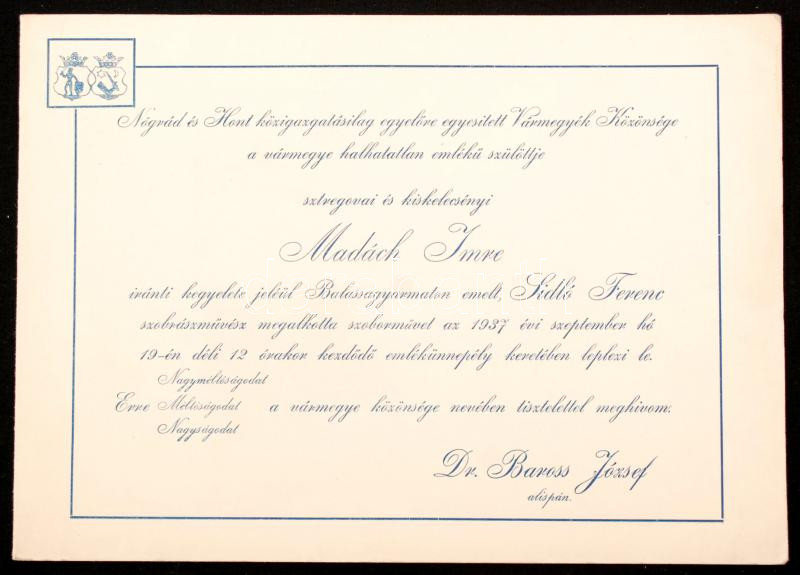 Nógrád és Hont közigazgatásilag egyelőre egyesített Vármegyék Közönsége
a vármegye halhatatlan emlékű szülöttje
sztregovai és kiskelecsényi
Madách Imre
iránti kegyelete jeléül Balassagyarmaton emelt, Sidló Ferenc
szobrászművész megalkotta szoborművet az 1937 évi szeptember hó
19-én déli 12 órakor kezdődő emlékünnepély keretében leplezi le.
Nagyméltóságodat
Erre Méltóságodat a vármegye közönsége nevében tisztelettel meghívom.
Nagyságodat
Dr. Baross József
alispán.